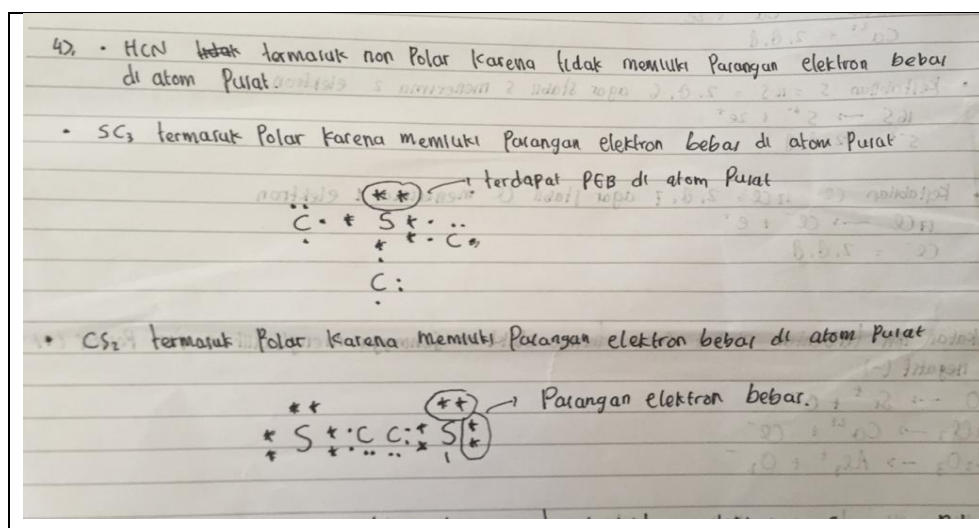 4). • HCN termasuk non Polar Karena tidak memiluki Pasangan elektron bebas
di atom Pusat.
• SC₃ termasuk Polar Karena memiluki Pasangan elektron bebas di atom Pusat
terdapat PEB di atom Pusat
C S C
C
• CS₂ termasuk Polar Karena memiluki Pasangan elektron bebas di atom Pusat
Pasangan elektron bebas.
S C C S